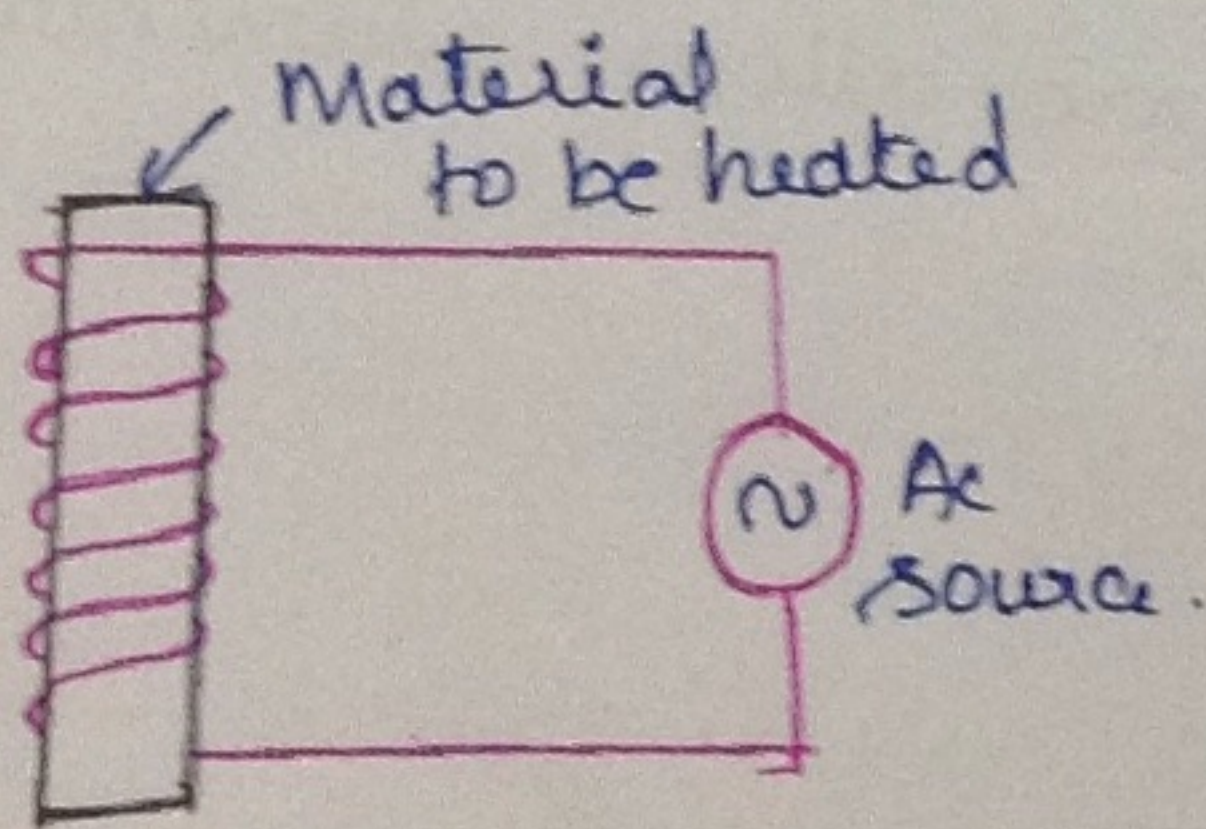 Material
to be heated
~
Ac
source.